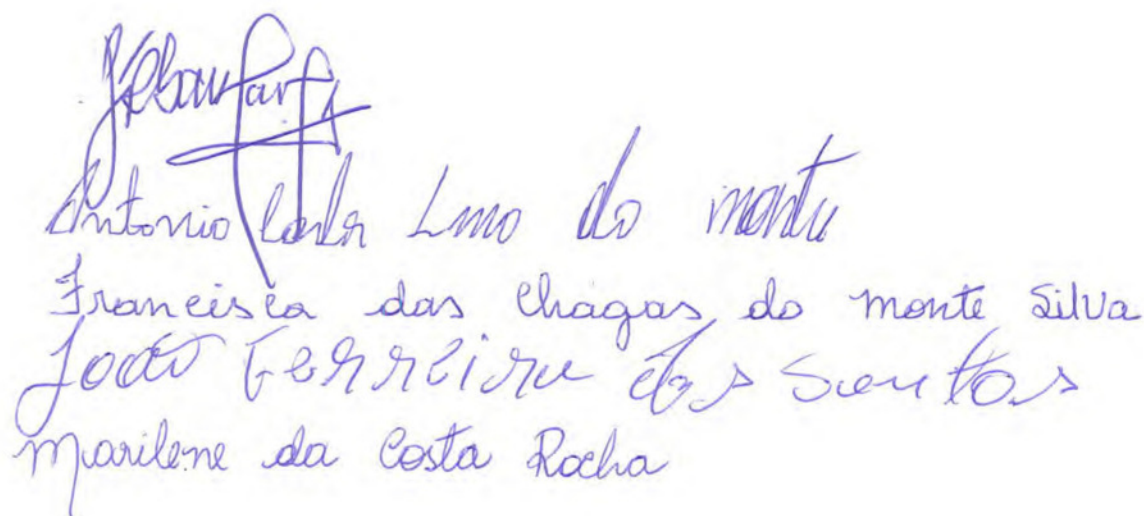 Antonio do monte
Francisca das Chagas do monte Silva
João Ferreira dos Santos
Marilene da Costa Rocha